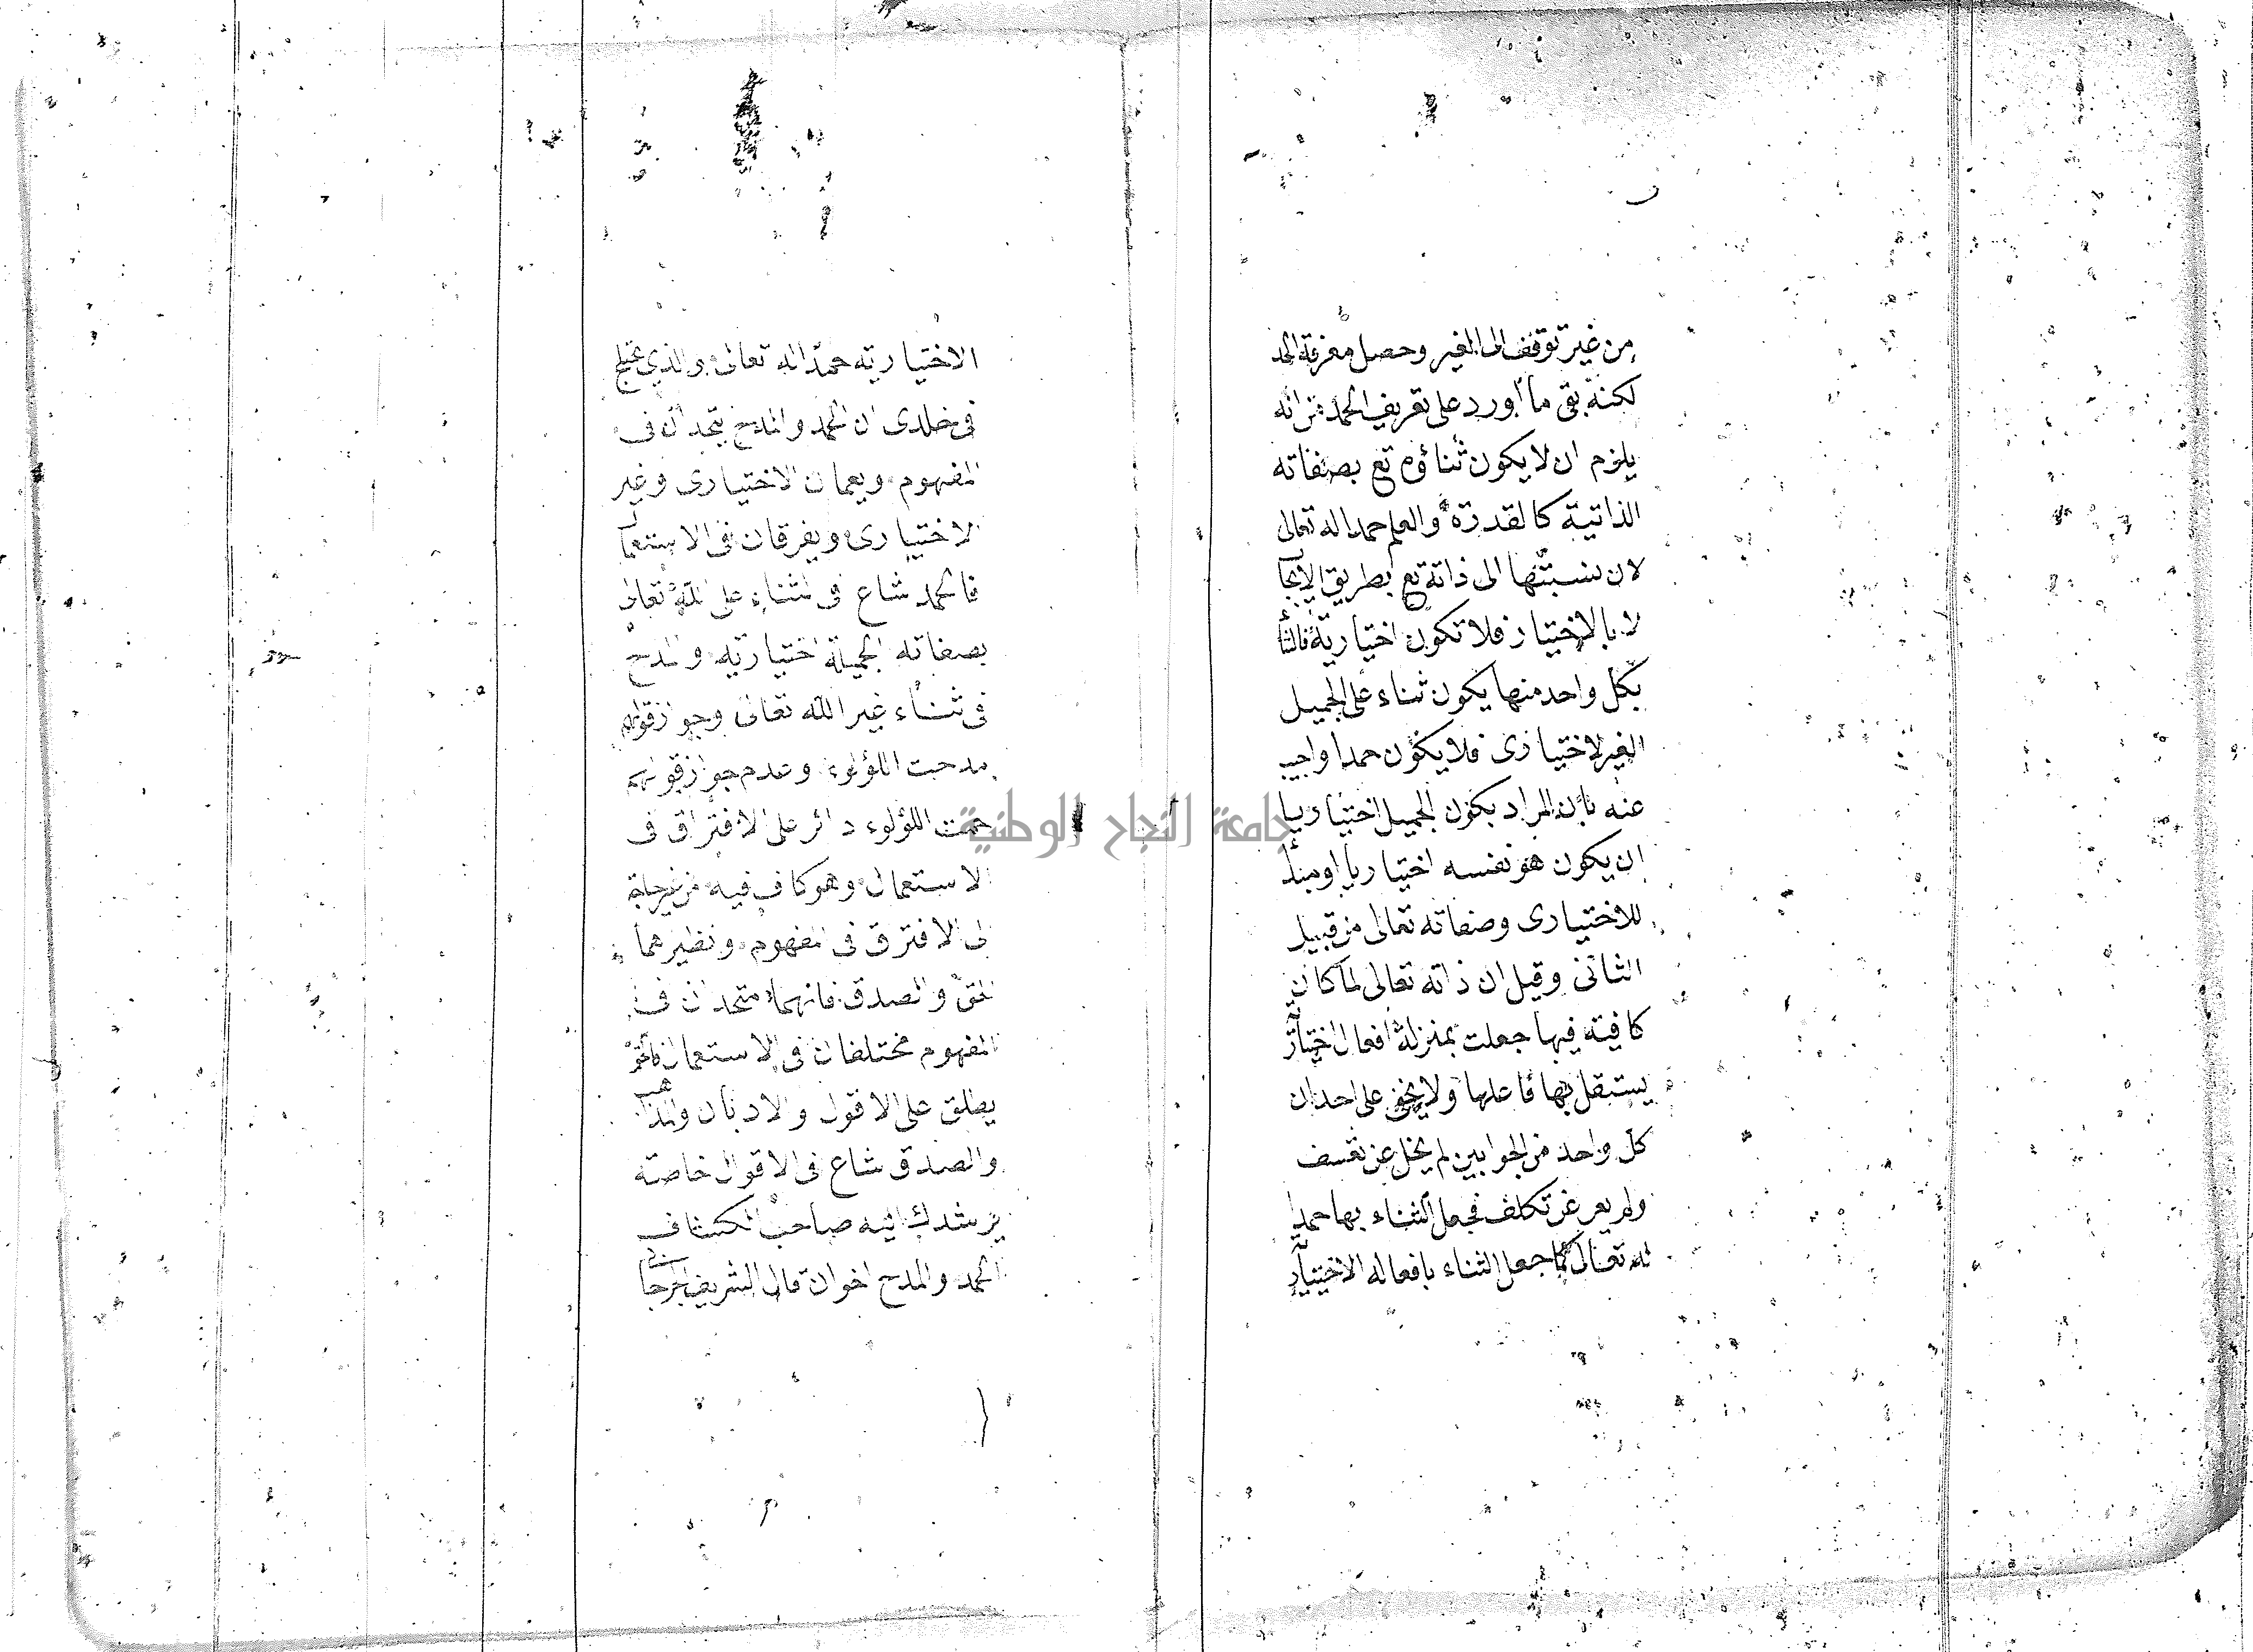 من غير توقف الى الغير وحصل معرفة الحمد
لكنه بقى ما اورد على تعريف الحمد من انه
يلزم ان لا يكون ثناؤه تع بصفاته
الذاتية كالقدرة والعلم حمدا له تعالى
لان نسبتها الى ذاته تع بطريق الايجا
لا بالاختيار فلا تكون اختيارية فالثنا
بكل واحد منها يكون ثناء على الجميل
الغير الاختيارى فلا يكون حمدا واجيب
عنه بان المراد بكون الجميل اختياريا
ان يكون هو نفسه اختياريا او مبدأ
للاختيارى وصفاته تعالى من قبيل
الثانى وقيل ان ذاته تعالى لما كان
كافية فيها جعلت بمنزلة افعال اختيارية
يستقل بها فاعلها ولا يخفى على احد ان
كل واحد من الجوابين لم يخل عن تعسف
ولم يعر عن تكلف فجعل الثناء بها حمدا
لله تعالى كما جعل الثناء بافعاله الاختيار
الاختياريه حمدا له تعالى والذي يختلج
فى خلدى ان الحمد والمدح يتحدان فى
المفهوم ويعمان الاختيارى وغير
الاختيارى ويفرقان فى الاستعمال
فالحمد شاع فى الثناء على الله تعالى
بصفاته الجميلة اختياريه والمدح
فى ثناء غير الله تعالى وجواز قولهم
مدحت اللؤلوء وعدم جواز قولهم
حمدت اللؤلوء دائر على الافتراق فى
الاستعمال وهو كاف فيه من غير حاجة
الى الافترق فى المفهوم ونظيرهما
الحق والصدق فانهما متحدان فى
المفهوم مختلفان فى الاستعمال فالحق
يطلق على الاقول والاديان والمذاهب
والصدق شاع فى الاقوال خاصته
يرشدك اليه صاحب الكشاف
الحمد والمدح اخوان قال الشريف الجرجانى
جامعة النجاح الوطنية